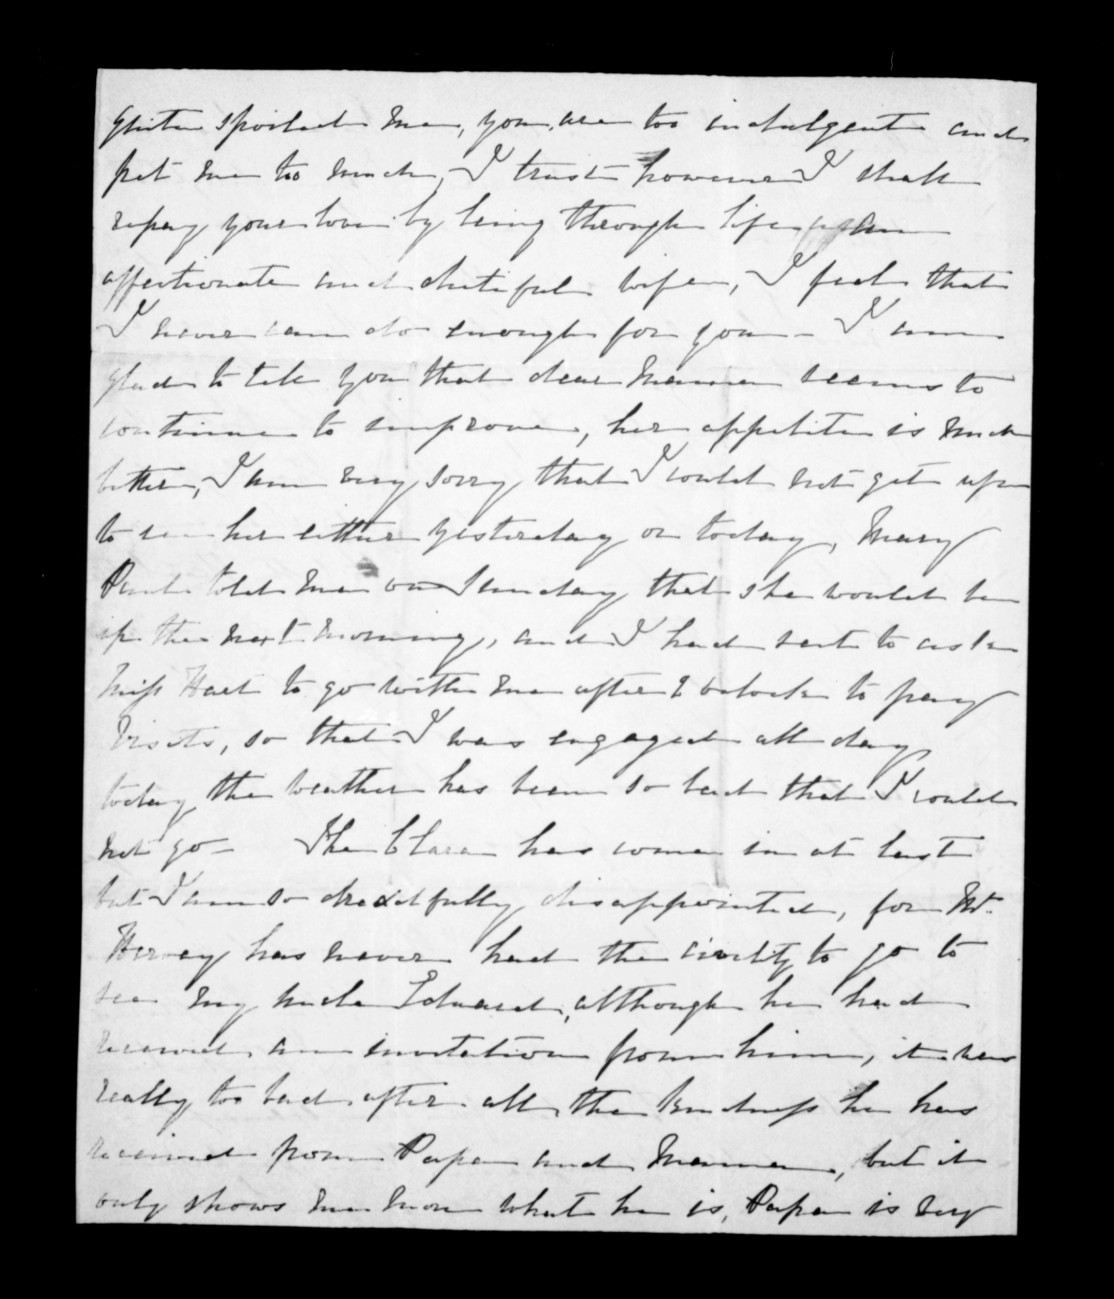 quite spoiled me, you are too indulgent and
pet me to much, I trust however I shall
repay your love by being through life an
affectionate and dutiful wife, I feel that
I never can do enough for you - I am
glad to tell you that dear Mamma seems to
continue to improve, her appetite is much
better, I am very sorry that I could not get up
to see her either yesterday or today, Mary
told me on Sunday that she would be
up the next morning, and I had sent to ask
Miss Hart to go with me after 2 oclock to pay
visits, so that I was engaged all day,
today the weather has been so bad that I could
not go - The Clara has come in at last
but I am so dreadfully disappointed, for Mr.
Hervey has never had the civility to go to
see my Uncle Edward, although he had
received an invitation from him, it was
really too bad after all the kindness he has
received from Papa and Mamma, but it
only shows me more what he is, Papa is very